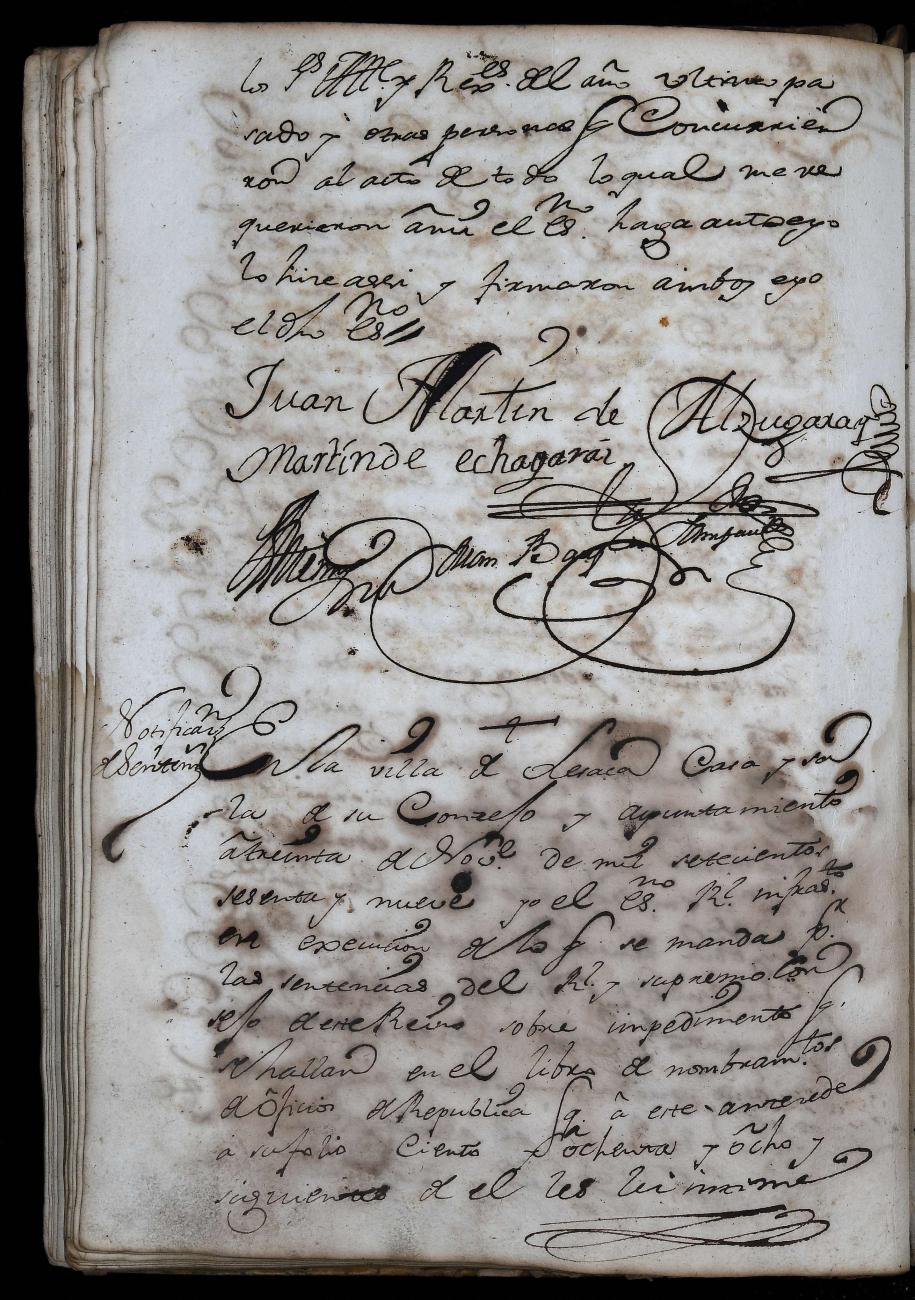 los Sres Alle. y Rexes. del año ultimo pa
sado y otras personas q Concurrien
ron al acto de todo lo qual me re
querieron âmi el esno. haga auto eyo
lo hice assi y firmaron ambos eyo
el dho esno
Juan Martin de Alzugaray
Martin de echagarai
Juan Bap
Notificazn
de Senten
En la villa de Lesaca Casa y sa
la de su Conzejo y ayuntamiento
âtreinta de Nove. de mil setecientos
sesenta y nueve yo el esno. Rl. infrasto.
en execucion de lo q se manda pr.
las sentencias del Rl. y supremo Con
sejo de este Reino sobre impedimentos q.
se hallan en el libro de nombramtos
de ôficios de Republica q. â este antezede
a su folio Ciento y ôchenta y ôcho y
siguientes de el les lei inxime